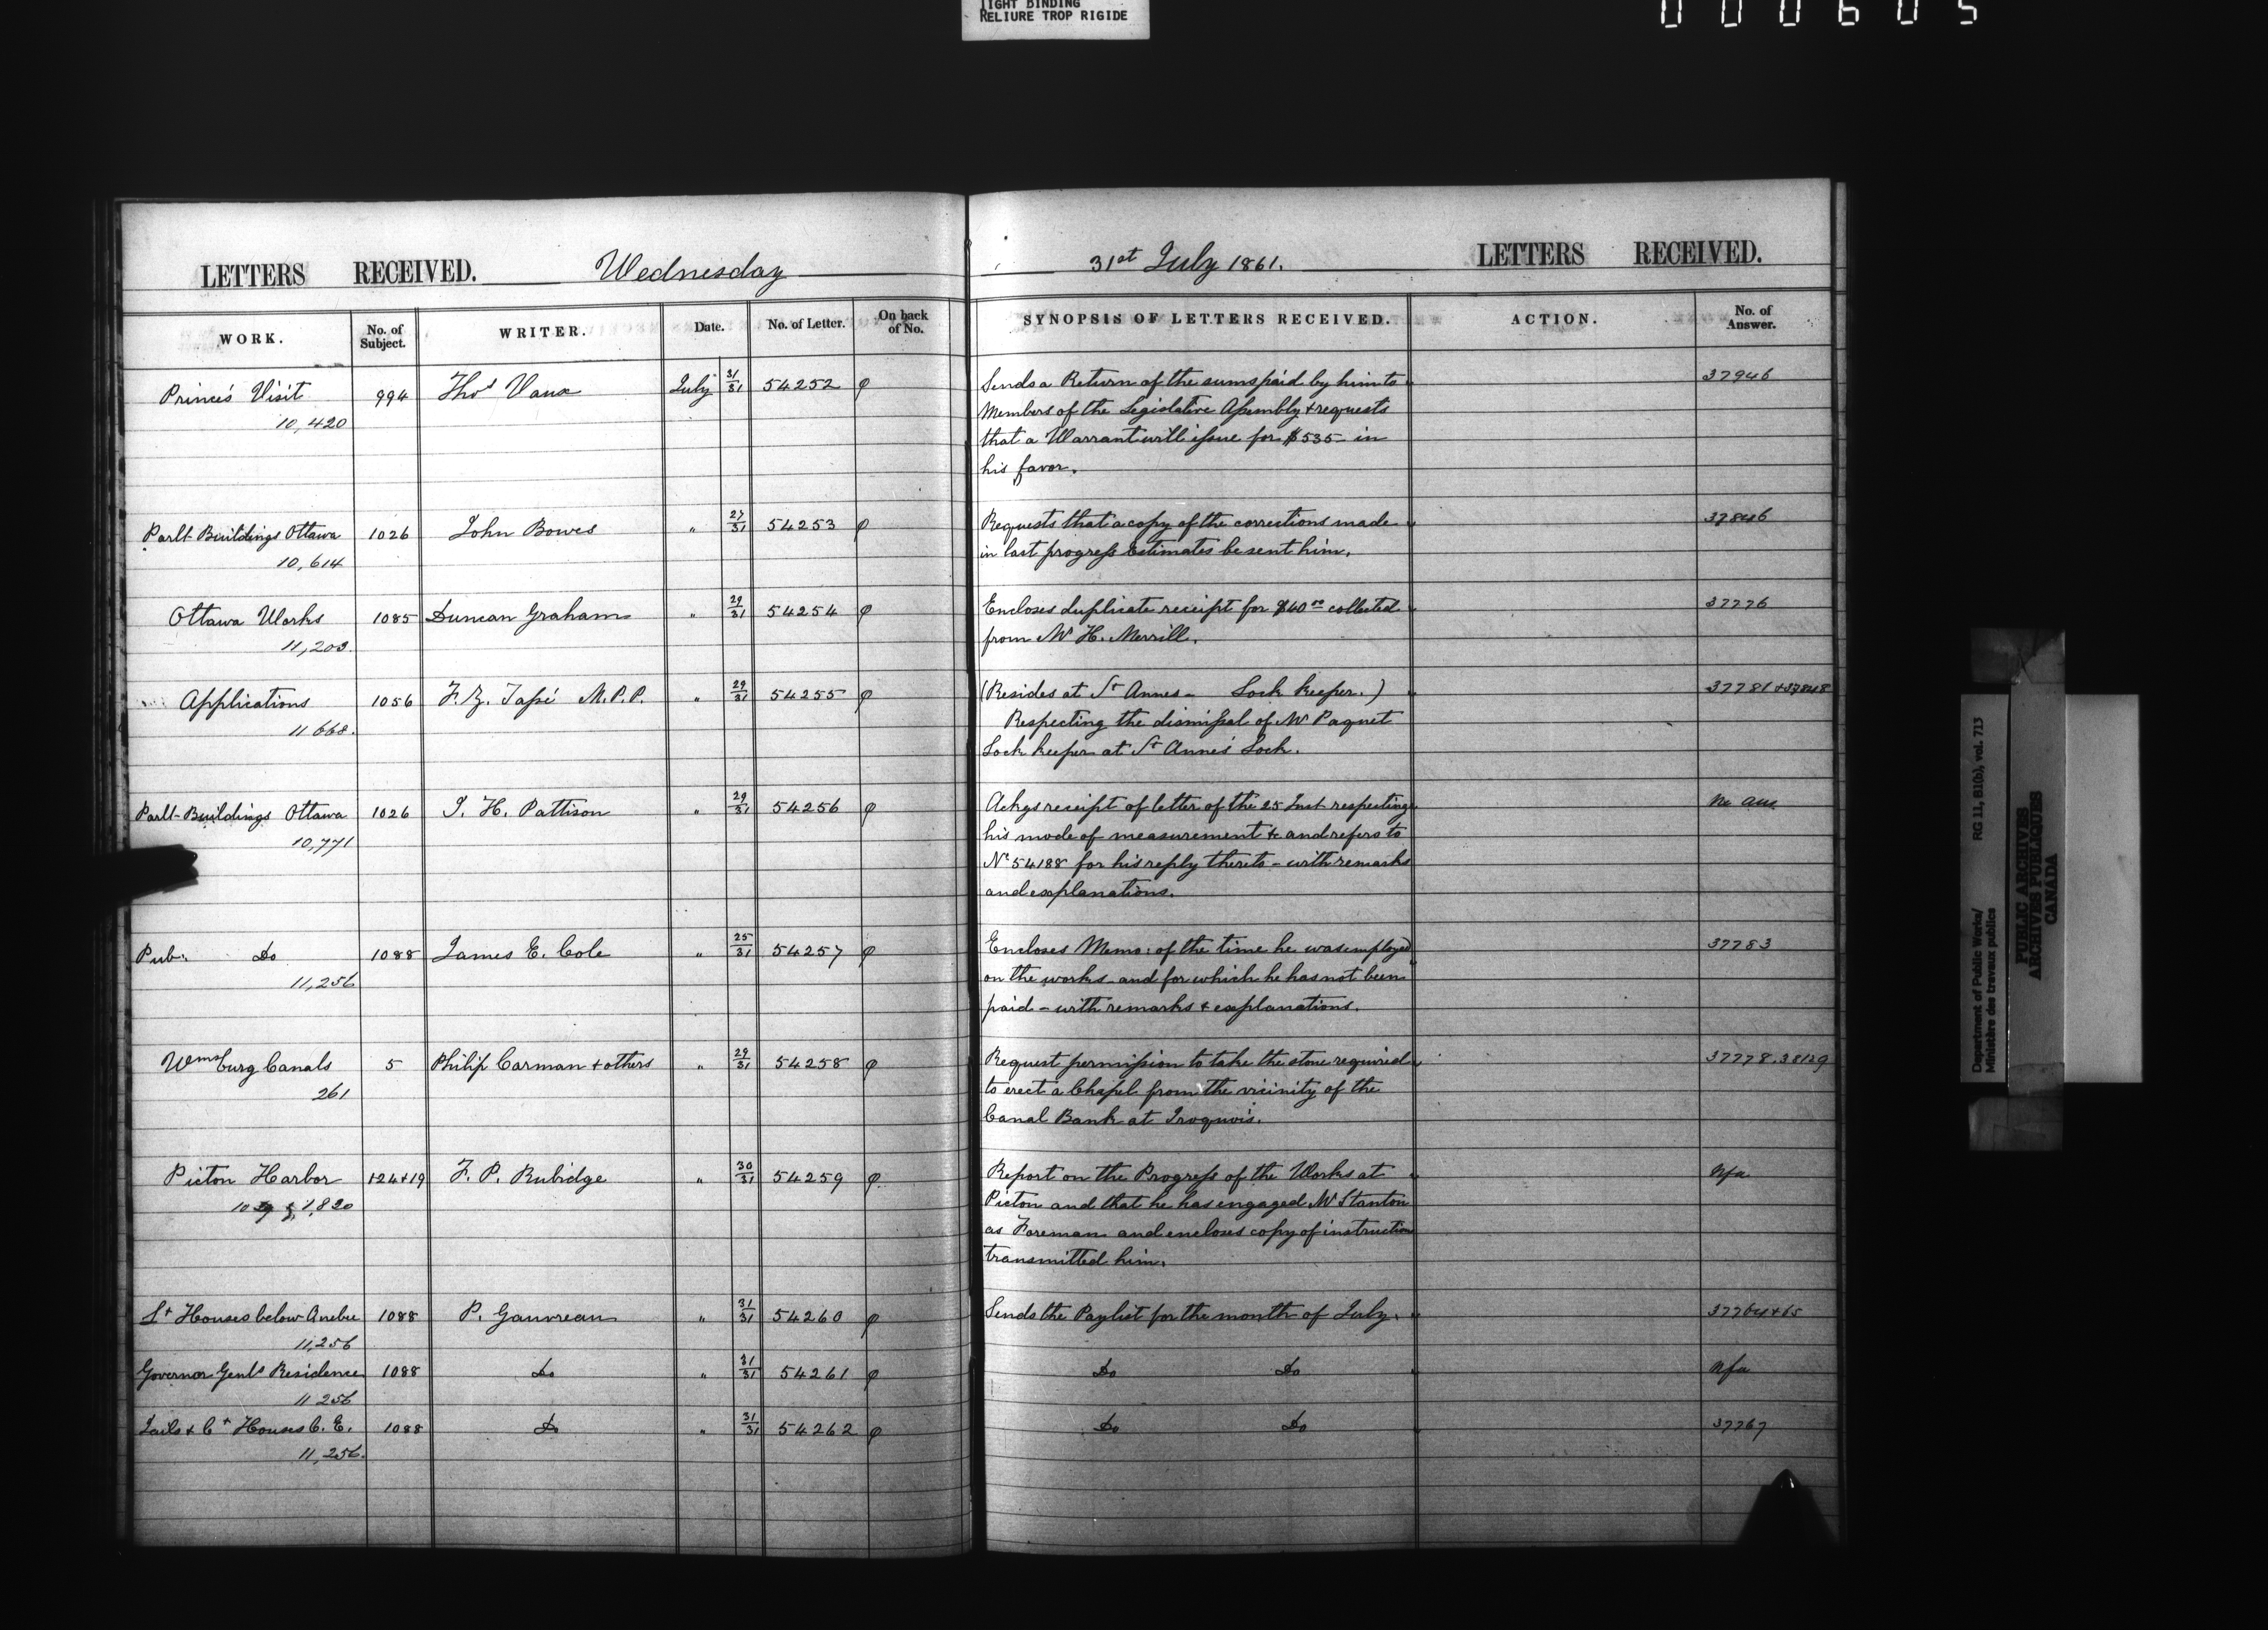 TIGHT BINDING
RELIURE TROP RIGIDE
000605
LETTERS RECEIVED. Wednesday
WORK. No. of Subject. WRITER. Date. No. of Letter. On back of No.
Prince's Visit 994 Thos Vaux July 31/31 54252 φ
10,420
Parlt Buildings Ottawa 1026 John Bowes " 27/31 54253 φ
10,614
Ottawa Works 1085 Duncan Graham " 29/31 54254 φ
11,203.
Applications 1056 M.P.P. " 29/31 54255 φ
11668.
Parlt Buildings Ottawa 1026 J. H. Pattison " 29/31 54256 φ
10,771
Pub: Do 1088 James E. Cole " 25/31 54257 φ
11,256
Wmsburg Canals 5 Philip Carman + others " 29/31 54258 φ
261
Picton Harbor 124+19 F. P. Rubidge " 30/31 54259 φ
1,820
Lt Houses below Quebec 1088 P. Gauvreau " 31/31 54260 φ
11,256
Governor Genls Residence 1088 Do " 31/31 54261 φ
11256
Jails & Ct Houses C. E. 1088 Do " 31/31 54262 φ
11,256.
31st July 1861. LETTERS RECEIVED.
SYNOPSIS OF LETTERS RECEIVED. ACTION. No. of Answer.
Sends a Return of the sums paid by him to 37946
Members of the Legislative Assembly + requests
that a Warrant will issue for $535- in
his favor.
Requests that a copy of the corrections made 37846
in last progress Estimates be sent him.
Encloses duplicate receipt for $40 00 collected 37776
from Mr H. Merrill.
(Resides at St Annes - Lock keeper.) 37781+37848
Respecting the dismissal of Mr Paquet
Lock keeper at St Annes Lock.
Ackgs receipt of letter of the 25 Inst respecting No ans
his mode of measurement &c and refers to
No 54188 for his reply thereto - with remarks
and explanations.
Encloses Memo: of the time he was employed 37783
on the works and for which he has not been
paid - with remarks + explanations.
Request permission to take the stone required 37778.38129
to erect a Chapel from the vicinity of the
Canal Bank at Iroquois.
Report on the Progress of the Works at Nfa
Picton and that he has engaged Mr Stanton
as Foreman and encloses copy of instruction
transmitted him.
Sends the Paylist for the month of July. 37764+65
Do Do Nfa
Do Do 37767
Department of Public Works/ RG 11, B1(b), vol. 713
Ministère des travaux publics
PUBLIC ARCHIVES
ARCHIVES PUBLIQUES
CANADA